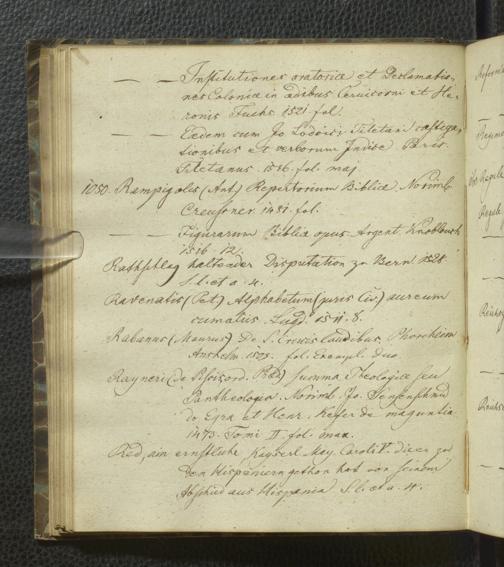 — — Institutiones oratoriæ et Declamatio-
nes Coloniæ in ædibus Cervicorni et He-
ronis Fuchs 1521. fol.
— — Eædem cum Jo Lodoici Tiletani castiga-
tionibus et verborum Indice Paris
Tiletanus. 1516. fol. maj.
1050. Rampigolis (Ant) Repertorium Bibliæ Norimb
Creusner. 1481. fol.
— — Figurarum Bibliæ opus Argent. Knoblouch
1516. 12.
Rathschlag haltender Disputation zu Bern 1528.
S. l. et a. 4.
Ravenatis (Pet) Alphabetum (juris Civ) aureum
Lugd. 1511. 8.
Rabanus (Maurus) De S. Crucis laudibus Phorcheim
Anshelm fol. Exempl. duo
Rayneri (De Pisis ord. Præd) Summa Theologiæ seu
Pantheologia. Norimb. Jo. Sensenschmid
de Egra et Henr. Kefer de maguntia
1473. Tomi II. fol. max.
Red, ain ernstliche, Kayserl. May. Caroli V. die er zu
den Hispäniern gethon hat von seinem
Abschied aus Hispania S. l. et a. 4.